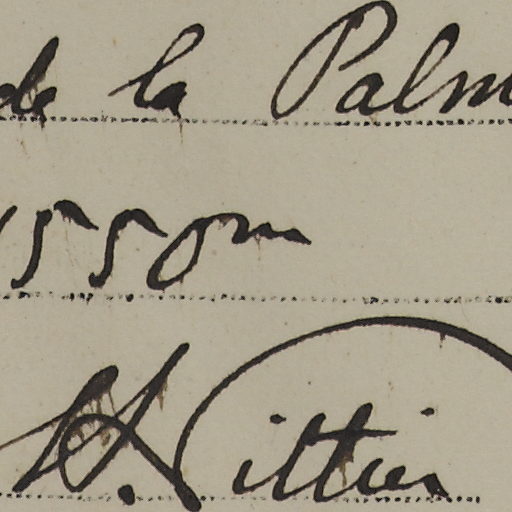 de la Palm
1550m
H. Pittier